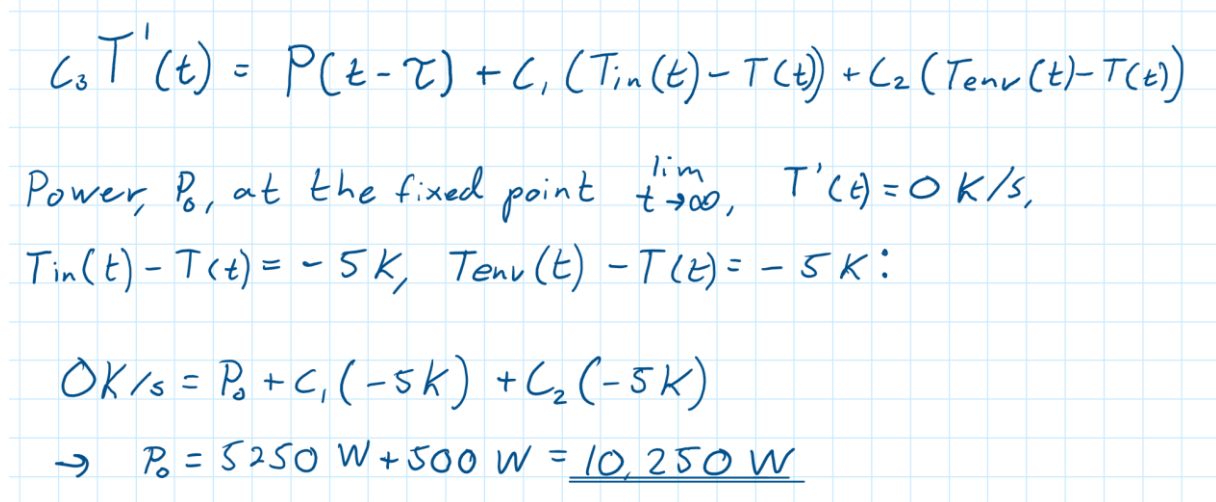 C₃T'(t) = P(t-τ) + C₁(Tin(t) - T(t)) + C₂(Tenv(t) - T(t))
Power, P₀, at the fixed point lim t→∞, T'(t) = 0 K/s,
Tin(t) - T(t) = - 5 K, Tenv(t) - T(t) = - 5 K:
0K/s = P₀ + C₁(-5K) + C₂(-5K)
→ P₀ = 5250 W + 500 W = 10,250 W